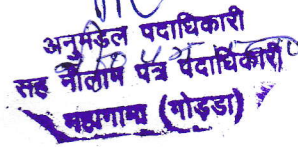 अनुमंडल पदाधिकारी
सह नीलाम पत्र पदाधिकारी
महागामा (गोड्डा)